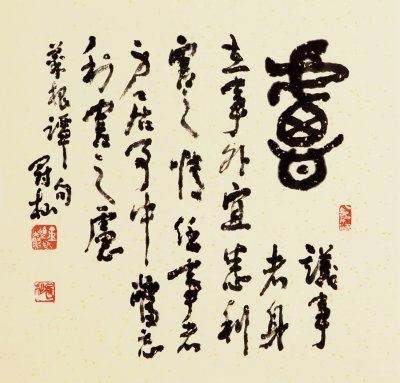 議事
者身
在事外宜悉利
害之情任事者
身居事中當忘
利害之慮
菜根譚句